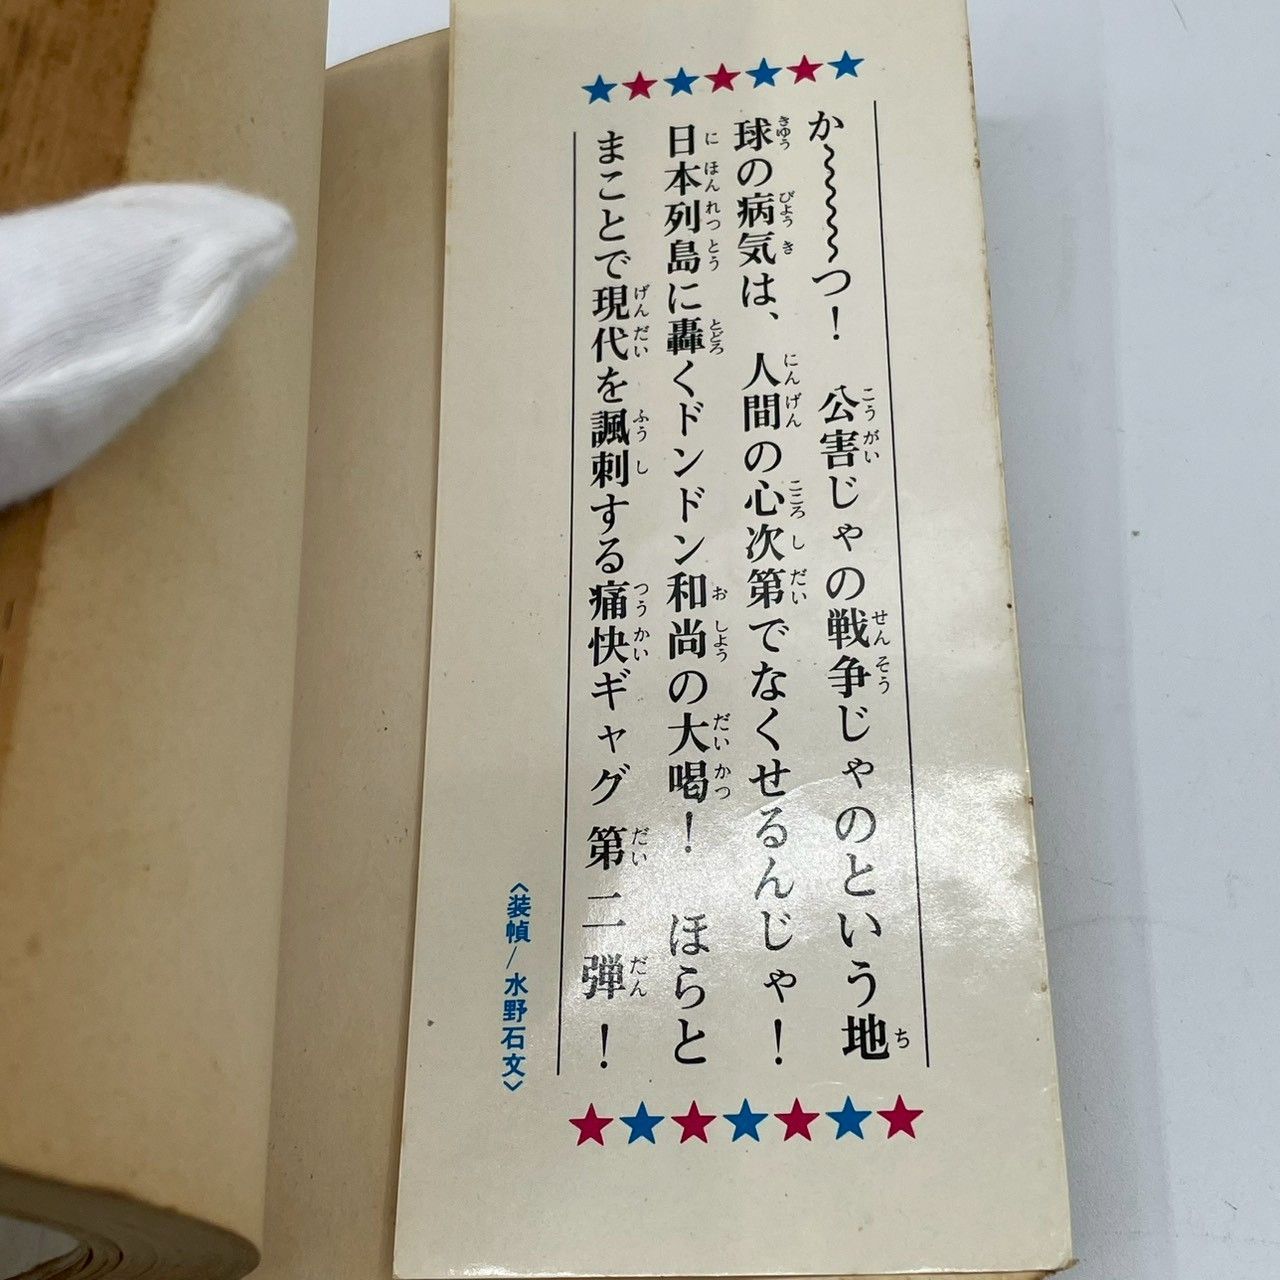 か〜〜〜〜つ！　公害じゃの戦争じゃのという地
球の病気は、人間の心次第でなくせるんじゃ！
日本列島に轟くドンドン和尚の大喝！　ほらと
まことで現代を諷刺する痛快ギャグ第二弾！
〈装幀/水野石文〉